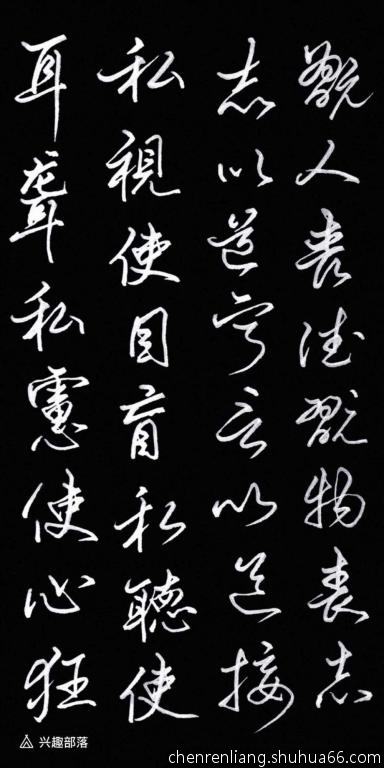 翫人喪德翫物喪志
志以道寧言以道接
私視使目盲私聽使
耳聋私慮使心狂
兴趣部落
chenrenliang.shuhua66.com